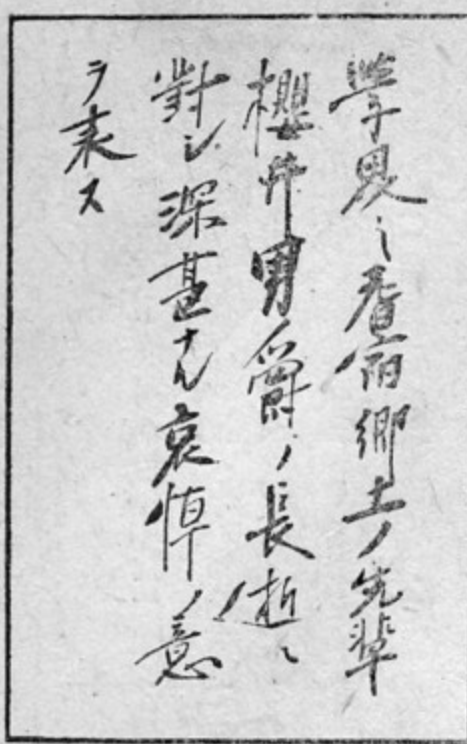 學界ノ耆宿郷土ノ先輩
櫻井男爵ノ長逝ニ
對シ深甚ナル哀悼ノ意
ヲ表ス